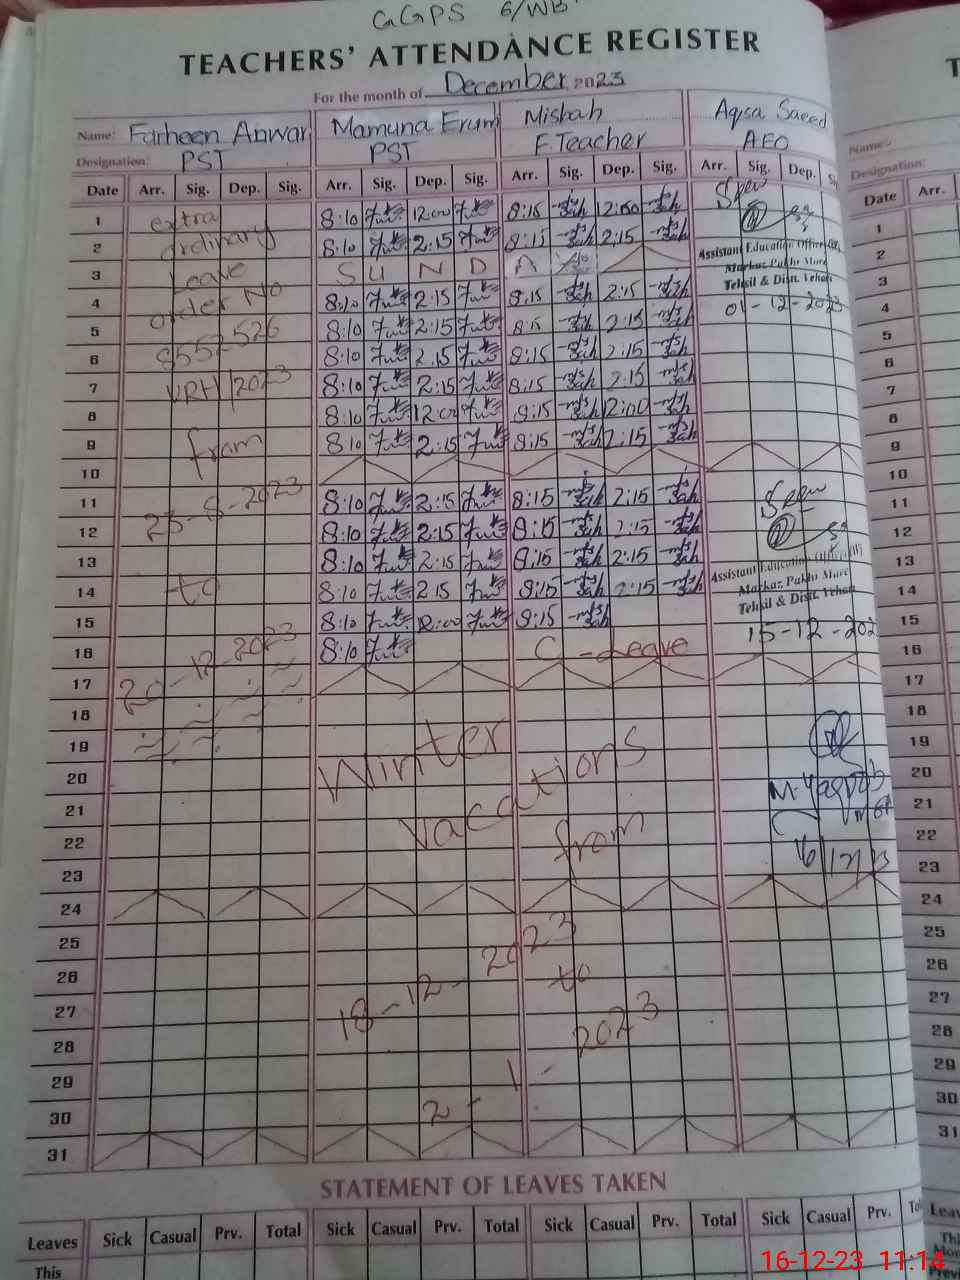 GGPS 6/WB
TEACHERS' ATTENDANCE REGISTER
For the month of December 2023
Name: Farheen Anwar Mamuna Erum Misbah Aqsa Saeed
Designation: PST PST E.Teacher AEO
Name:
Designation:
Date Arr. Sig. Dep. Sig. Arr. Sig. Dep. Sig. Arr. Sig. Dep. Sig. Arr. Sig. Dep. Date Arr.
1 extra 8:10 12:00 8:15 12:00 1
2 ordinary 8:10 2:15 8:15 2:15 Assistant Education Officer 2
3 Leave S U N D A Markaz Pakhi More 3
Tehsil & Distt. Vehari
4 order No 8:10 2:15 8:15 2:15 01-12-2023 4
5 8552526 8:10 2:15 8:15 2:15 5
6 8:10 2:15 8:15 2:15 6
7 VRH/2023 8:10 2:15 8:15 2:15 7
8 8:10 12:00 8:15 2:00 8
9 from 8:10 2:15 8:15 2:15 9
10 10
11 23-8-2023 8:10 2:15 8:15 2:15 11
12 8:10 2:15 8:15 2:15 12
13 8:10 2:15 8:15 2:15 Assistant Education Officer (W) 13
14 to 8:10 2:15 8:15 2:15 Markaz Pakhi More 14
Tehsil & Distt. Vehari
15 8:10 12:00 8:15 15-12-202 15
16 20-12-2023 8:10 C-Leave 16
17 17
18 18
19 Winter 19
20 vacations 20
21 M. Yaqoob 21
22 from 22
23 16/12/23 23
24 24
25 2023 25
26 to 26
27 18-12- 27
28 2023 28
29 1- 29
30 2- 30
31 31
STATEMENT OF LEAVES TAKEN
Leaves Sick Casual Prv. Total Sick Casual Prv. Total Sick Casual Prv. Total Sick Casual Prv.
This
16-12-23 11:14